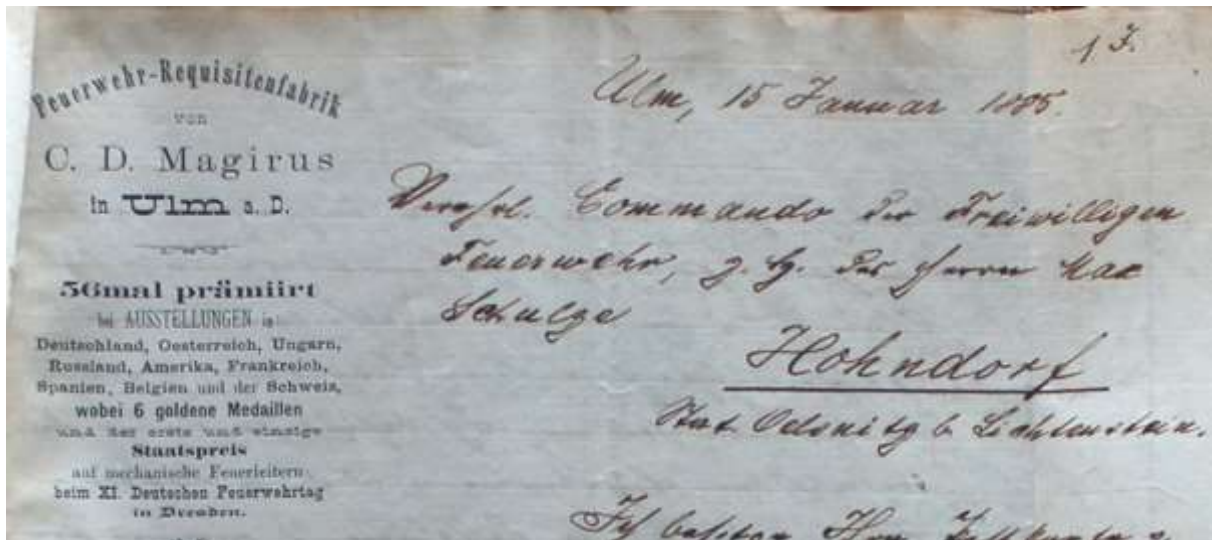 1 J.
Feuerwehr-Requisitenfabrik
von
C. D. Magirus
in Ulm a. D.
56mal prämiirt
bei AUSSTELLUNGEN in
Deutschland, Oesterreich, Ungarn,
Russland, Amerika, Frankreich,
Spanien, Belgien und der Schweiz,
wobei 6 goldene Medaillen
und der erste und einzige
Staatspreis
auf mechanische Feuerleitern
beim XI. Deutschen Feuerwehrtag
in Dresden.
Ulm, 15 Januar 1885.
Verehrl. Commando der Freiwilligen
Feuerwehr, z. H. des Herrn Max
Schulze
Hohndorf
Stat. Oelsnitz b. Lichtenstein.